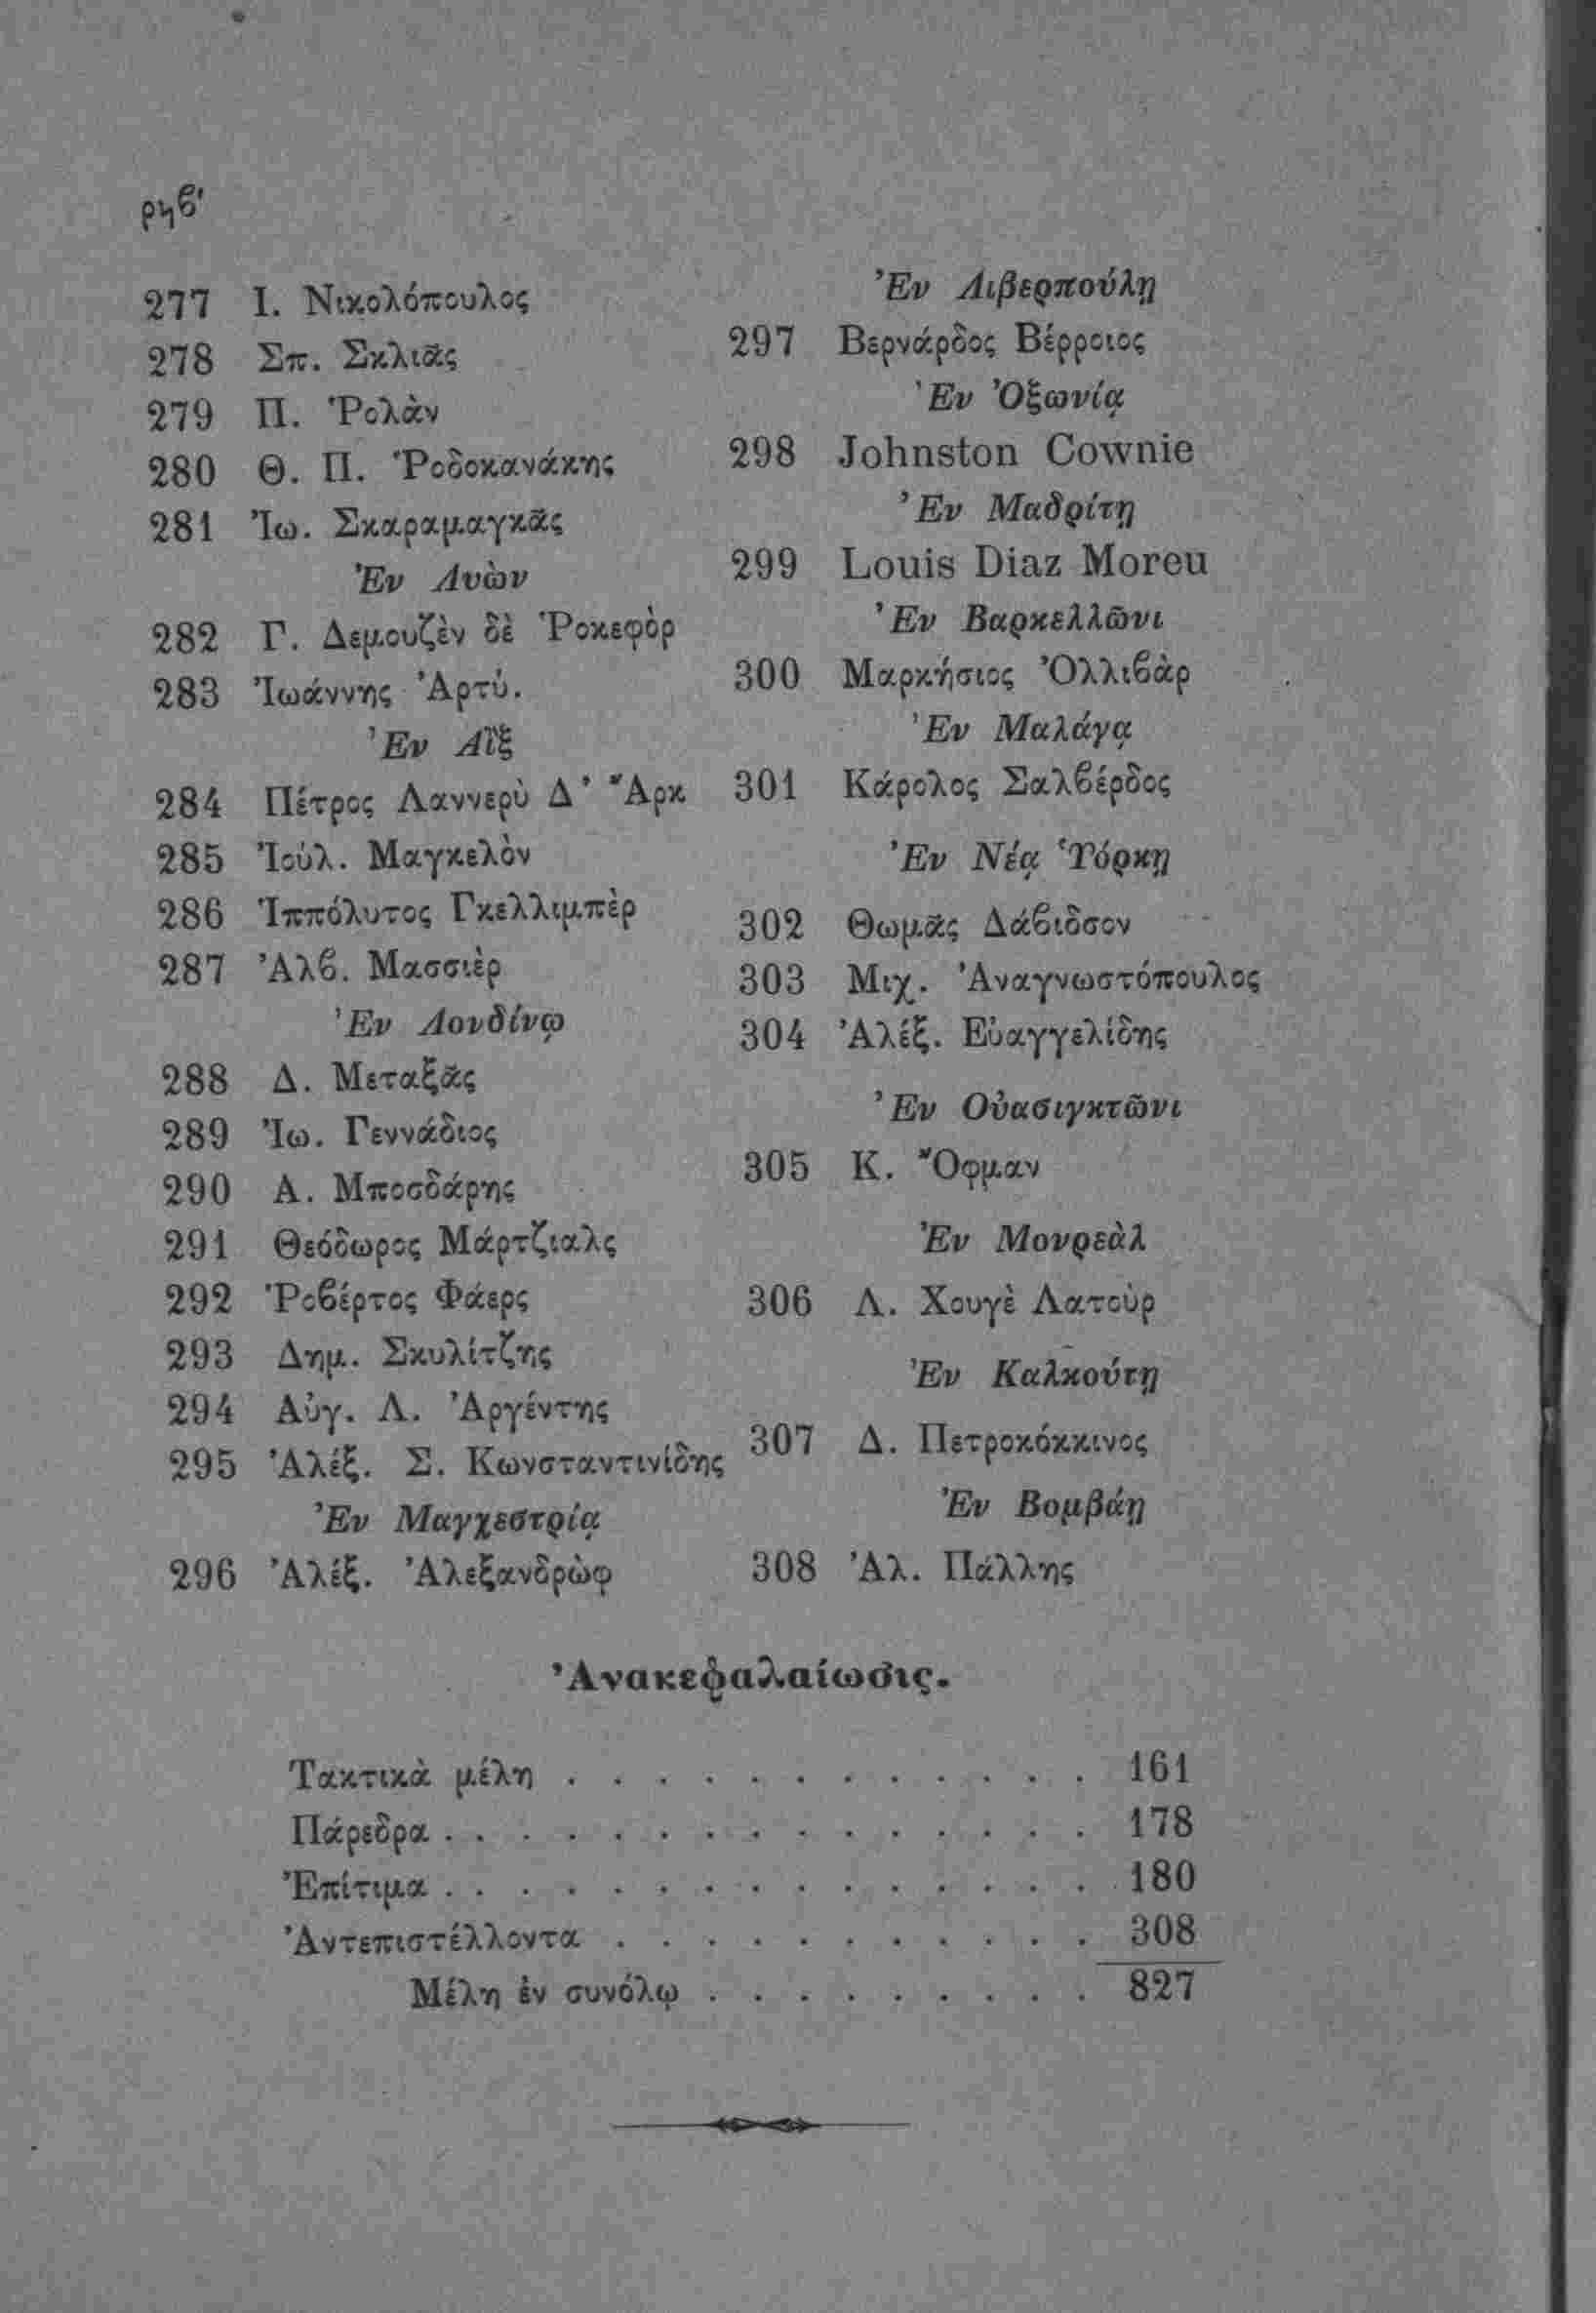 ρϟϐ'
277 Ι. Νικολόπουλος
278 Σπ. Σκλιᾶς
279 Π. Ῥολὰν
280 Θ. Π. Ῥοδοκανάκης
281 Ἰω. Σκαραμαγκᾶς
Ἐν Λυὼν
282 Γ. Δεμουζὲν δὲ Ῥοκεφὸρ
283 Ἰωάννης Ἀρτύ.
Ἐν Αἲξ
284 Πέτρος Λαννερὺ Δ' Ἂρκ
285 Ἰούλ. Μαγκελὸν
286 Ἱππόλυτος Γκελλιμπὲρ
287 Ἀλϐ. Μασσιὲρ
Ἐν Λονδίνῳ
288 Δ. Μεταξᾶς
289 Ἰω. Γεννάδιος
290 Α. Μποσδάρης
291 Θεόδωρος Μάρτζιαλς
292 Ῥοϐέρτος Φάερς
293 Δημ. Σκυλίτζης
294 Αὐγ. Λ. Ἀργέντης
295 Ἀλέξ. Σ. Κωνσταντινίδης
Ἐν Μαγχεστρίᾳ
296 Ἀλέξ. Ἀλεξανδρὼφ
Ἐν Λιβερπούλῃ
297 Βερνάρδος Βέρροιος
Ἐν Ὀξωνίᾳ
298 Johnston Cownie
Ἐν Μαδρίτῃ
299 Louis Diaz Moreu
Ἐν Βαρκελλῶνι
300 Μαρκήσιος Ὀλλιϐὰρ
Ἐν Μαλάγᾳ
301 Κάρολος Σαλϐέρδος
Ἐν Νέᾳ Ὑόρκῃ
302 Θωμᾶς Δάϐιδσον
303 Μιχ. Ἀναγνωστόπουλος
304 Ἀλέξ. Εὐαγγελίδης
Ἐν Οὐασιγκτῶνι
305 Κ. Ὄφμαν
Ἐν Μονρεὰλ
306 Λ. Χουγὲ Λατοὺρ
Ἐν Καλκούτῃ
307 Δ. Πετροκόκκινος
Ἐν Βομβάῃ
308 Ἀλ. Πάλλης
Ἀνακεφαλαίωσις.
Τακτικὰ μέλη . . . . . . . . . . . . 161
Πάρεδρα . . . . . . . . . . . . . . . 178
Ἐπίτιμα . . . . . . . . . . . . . . . 180
Ἀντεπιστέλλοντα . . . . . . . . . . . 308
Μέλη ἐν συνόλῳ . . . . . . . . . 827